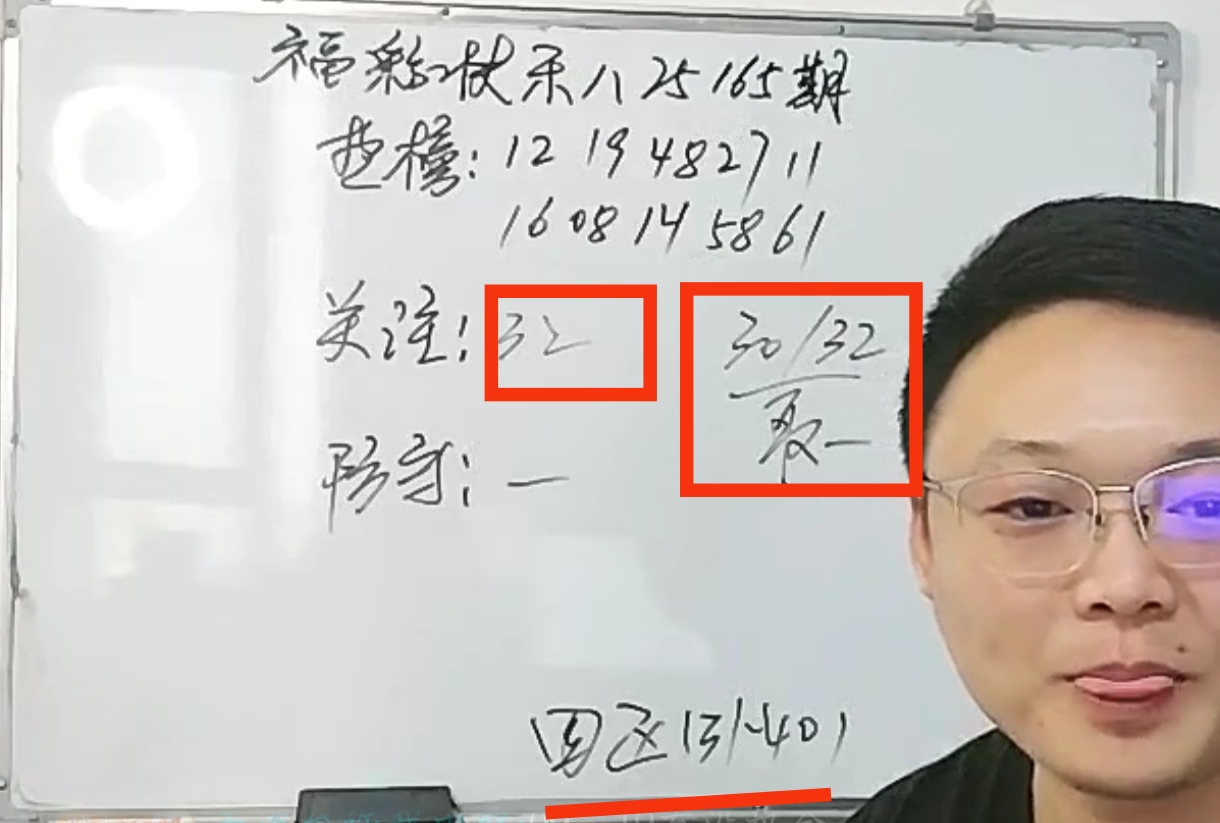 福彩快乐八25165期
垫榜:12 19 48 27 11
16 08 14 58 61
关注:32
30/32
取一
防守:一
四区(31-40)